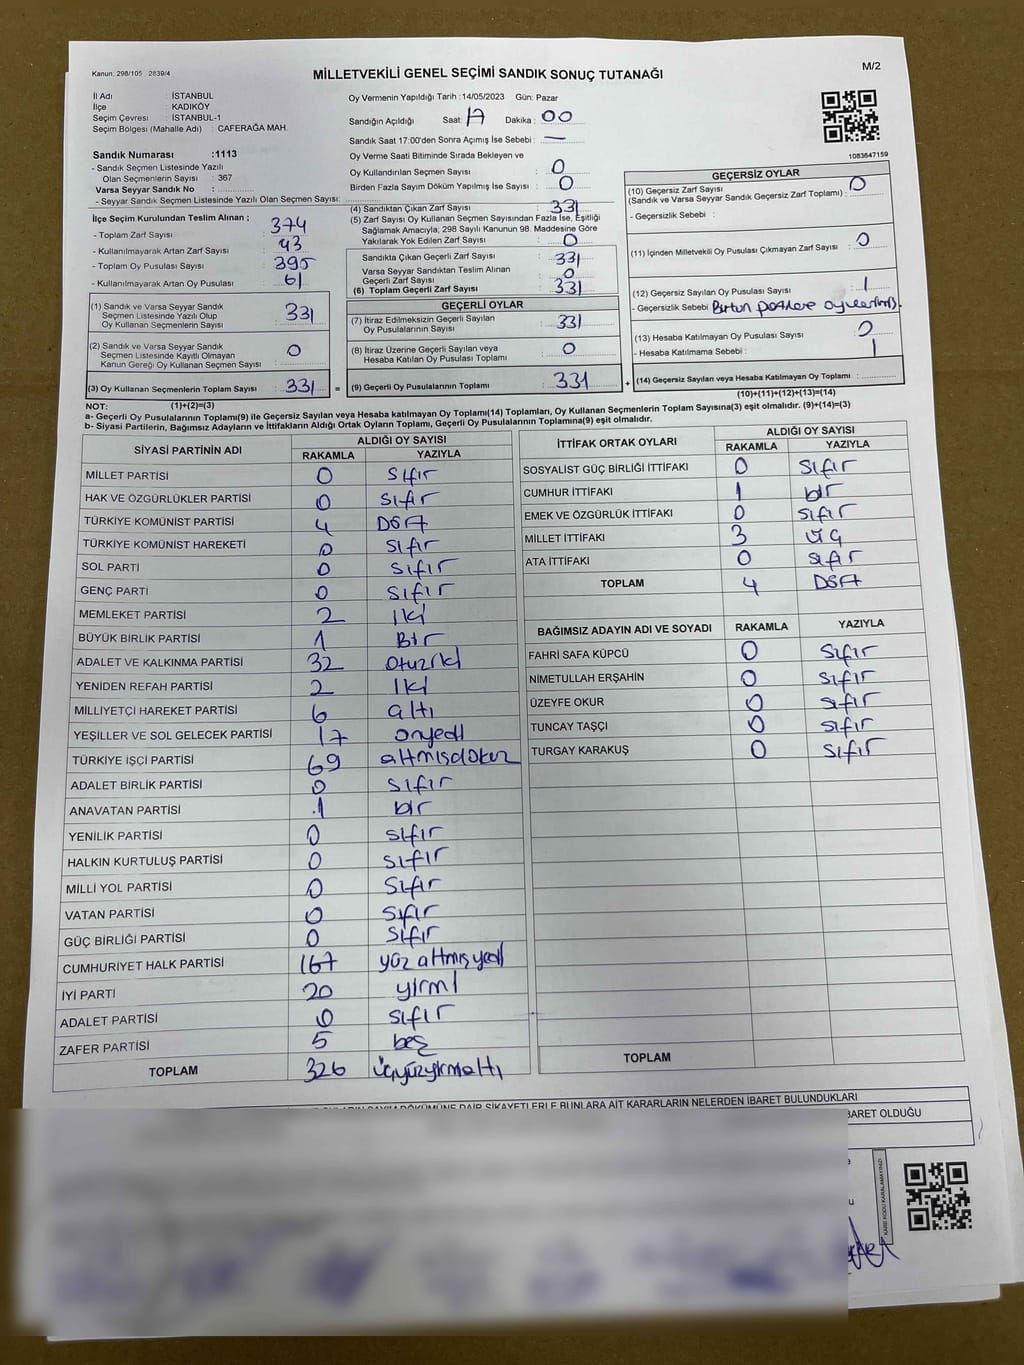 Kanun: 298/105 2839/4
MİLLETVEKİLİ GENEL SEÇİMİ SANDIK SONUÇ TUTANAĞI
M/2
İl Adı : İSTANBUL
İlçe : KADIKÖY
Seçim Çevresi : İSTANBUL-1
Seçim Bölgesi (Mahalle Adı) : CAFERAĞA MAH.
Sandık Numarası :1113
- Sandık Seçmen Listesinde Yazılı
Olan Seçmenlerin Sayısı : 367
Varsa Seyyar Sandık No :
- Seyyar Sandık Seçmen Listesinde Yazılı Olan Seçmen Sayısı:
Oy Vermenin Yapıldığı Tarih :14/05/2023 Gün: Pazar
Sandığın Açıldığı Saat: 17 Dakika : 00
Sandık Saat 17:00'den Sonra Açımış İse Sebebi : —
Oy Verme Saati Bitiminde Sırada Bekleyen ve
Oy Kullandırılan Seçmen Sayısı : 0
Birden Fazla Sayım Döküm Yapılmış İse Sayısı : 0
1083647159
İlçe Seçim Kurulundan Teslim Alınan ;
- Toplam Zarf Sayısı : 374
- Kullanılmayarak Artan Zarf Sayısı : 43
- Toplam Oy Pusulası Sayısı : 395
- Kullanılmayarak Artan Oy Pusulası : 61
(1) Sandık ve Varsa Seyyar Sandık
Seçmen Listesinde Yazılı Olup
Oy Kullanan Seçmenlerin Sayısı : 331
(2) Sandık ve Varsa Seyyar Sandık
Seçmen Listesinde Kayıtlı Olmayan
Kanun Gereği Oy Kullanan Seçmen Sayısı : 0
(3) Oy Kullanan Seçmenlerin Toplam Sayısı : 331 =
(1)+(2)=(3)
(4) Sandıktan Çıkan Zarf Sayısı : 331
(5) Zarf Sayısı Oy Kullanan Seçmen Sayısından Fazla İse, Eşitliği
Sağlamak Amacıyla; 298 Sayılı Kanunun 98. Maddesine Göre
Yakılarak Yok Edilen Zarf Sayısı : 0
Sandıkta Çıkan Geçerli Zarf Sayısı : 331
Varsa Seyyar Sandıktan Teslim Alınan
Geçerli Zarf Sayısı : 0
(6) Toplam Geçerli Zarf Sayısı : 331
GEÇERLİ OYLAR
(7) İtiraz Edilmeksizin Geçerli Sayılan
Oy Pusulalarının Sayısı : 331
(8) İtiraz Üzerine Geçerli Sayılan veya
Hesaba Katılan Oy Pusulası Toplamı : 0
(9) Geçerli Oy Pusulalarının Toplamı : 331 +
GEÇERSİZ OYLAR
(10) Geçersiz Zarf Sayısı : 0
(Sandık ve Varsa Seyyar Sandık Geçersiz Zarf Toplamı)
- Geçersizlik Sebebi :
(11) İçinden Milletvekili Oy Pusulası Çıkmayan Zarf Sayısı : 0
(12) Geçersiz Sayılan Oy Pusulası Sayısı : 1
- Geçersizlik Sebebi :
(13) Hesaba Katılmayan Oy Pusulası Sayısı : 0
- Hesaba Katılmama Sebebi : 1
(14) Geçersiz Sayılan veya Hesaba Katılmayan Oy Toplamı :
(10)+(11)+(12)+(13)=(14)
NOT:
a- Geçerli Oy Pusulalarının Toplamı(9) ile Geçersiz Sayılan veya Hesaba katılmayan Oy Toplamı(14) Toplamları, Oy Kullanan Seçmenlerin Toplam Sayısına(3) eşit olmalıdır. (9)+(14)=(3)
b- Siyasi Partilerin, Bağımsız Adayların ve İttifakların Aldığı Ortak Oyların Toplamı, Geçerli Oy Pusulalarının Toplamına(9) eşit olmalıdır.
SİYASİ PARTİNİN ADI ALDIĞI OY SAYISI
RAKAMLA YAZIYLA
MİLLET PARTİSİ 0 Sıfır
HAK VE ÖZGÜRLÜKLER PARTİSİ 0 Sıfır
TÜRKİYE KOMÜNİST PARTİSİ 4 Dört
TÜRKİYE KOMÜNİST HAREKETİ 0 Sıfır
SOL PARTİ 0 Sıfır
GENÇ PARTİ 0 Sıfır
MEMLEKET PARTİSİ 2 İki
BÜYÜK BİRLİK PARTİSİ 1 Bir
ADALET VE KALKINMA PARTİSİ 32 Otuziki
YENİDEN REFAH PARTİSİ 2 İki
MİLLİYETÇİ HAREKET PARTİSİ 6 altı
YEŞİLLER VE SOL GELECEK PARTİSİ 17 onyedi
TÜRKİYE İŞÇİ PARTİSİ 69 altmışdokuz
ADALET BİRLİK PARTİSİ 0 Sıfır
ANAVATAN PARTİSİ 1 bir
YENİLİK PARTİSİ 0 Sıfır
HALKIN KURTULUŞ PARTİSİ 0 Sıfır
MİLLİ YOL PARTİSİ 0 Sıfır
VATAN PARTİSİ 0 Sıfır
GÜÇ BİRLİĞİ PARTİSİ 0 Sıfır
CUMHURİYET HALK PARTİSİ 167 yüz altmış yedi
İYİ PARTİ 20 yirmi
ADALET PARTİSİ 0 Sıfır
ZAFER PARTİSİ 5 beş
TOPLAM 326 üçyüzyirmialtı
İTTİFAK ORTAK OYLARI ALDIĞI OY SAYISI
RAKAMLA YAZIYLA
SOSYALİST GÜÇ BİRLİĞİ İTTİFAKI 0 Sıfır
CUMHUR İTTİFAKI 1 bir
EMEK VE ÖZGÜRLÜK İTTİFAKI 0 Sıfır
MİLLET İTTİFAKI 3 üç
ATA İTTİFAKI 0 Sıfır
TOPLAM 4 Dört
BAĞIMSIZ ADAYIN ADI VE SOYADI RAKAMLA YAZIYLA
FAHRİ SAFA KÜPCÜ 0 Sıfır
NİMETULLAH ERŞAHİN 0 Sıfır
ÜZEYFE OKUR 0 Sıfır
TUNCAY TAŞÇI 0 Sıfır
TURGAY KARAKUŞ 0 Sıfır
TOPLAM
DÖKÜMÜNE DAİR ŞİKAYETLERLE BUNLARA AİT KARARLARIN NELERDEN İBARET BULUNDUKLARI
İBARET OLDUĞU